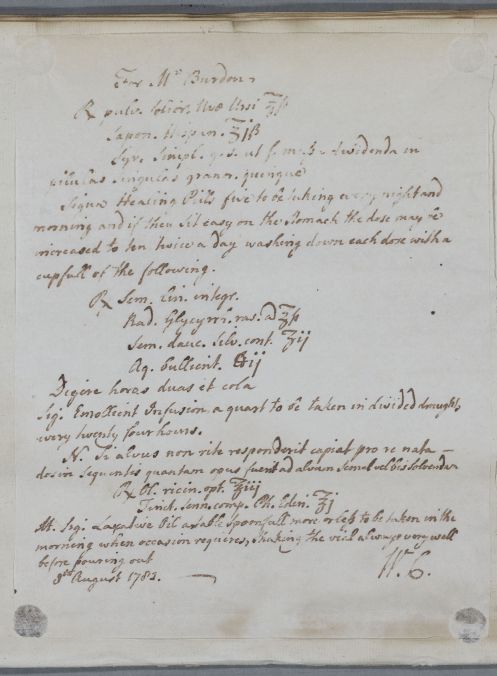 For Mr. Burdon
℞ pulv. folior. Uvæ Ursi ℥ſs
Sapon. Hispan. ℥jſs
Syr. Simpl. q. s. ut f. massa dividenda in
pilulas singulas granor. quinque
Signa Healing Pills five to be taking every night and
morning and if they sit easy on the Stomach the dose may be
increased to ten twice a Day washing down each dose with a
cupfull of the following.
℞ Sem. Lin. integr.
Rad. Glycyrrh. ras. a ℥ſs
Sem. dauc. Silv. cont. ʒij
Aq. bullient. ℔ij
Digere horas duas et cola
Sig. Emollient Infusion, a quart to be taken in divided draughts
every twenty four hours.
N. Si alvus non rite responderit capiat pro re nata —
dosin sequentis quantam opus fuerit ad alvum semel vel bis solvendam
℞ Ol. ricin. opt. ℥iij
Tinct. Senn. comp. Ph. Edin. ℥j
M. Sig. Laxative Oil a table spoonfull more or less to be taken in the
morning when occasion requires, shaking the vial always very well
before pouring out
8th August 1783.
Wm. C.